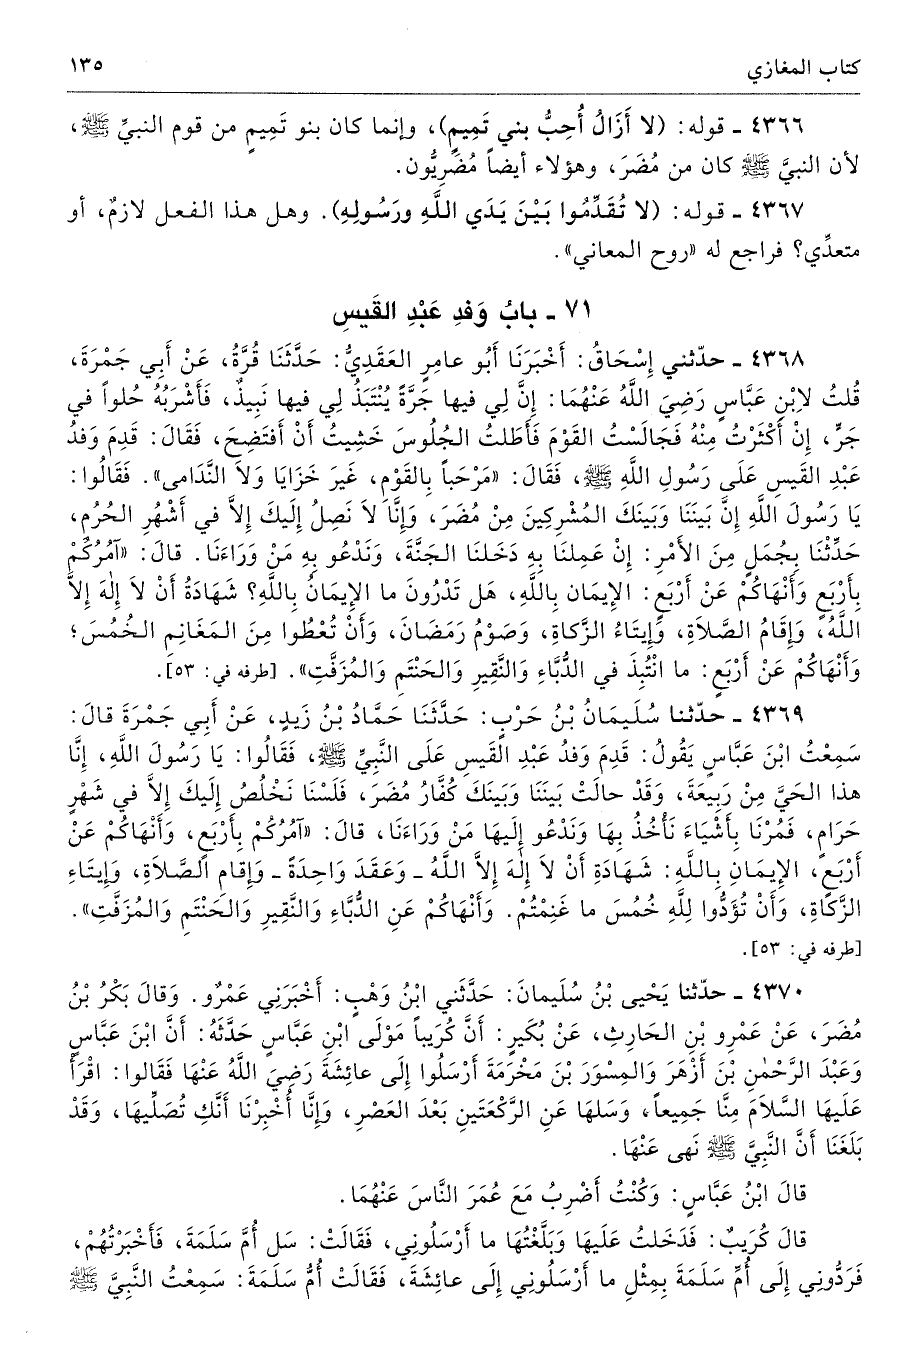 كتاب المغازي ١٣٥
٤٣٦٦ ـ قوله: (لا أَزَالُ أُحِبُّ بني تَمِيمٍ)، وإنما كان بنو تَمِيمٍ من قوم النبيِّ ﷺ،
لأن النبيَّ ﷺ كان من مُضَرَ، وهؤلاء أيضاً مُضَرِيُّون.
٤٣٦٧ ـ قوله: (لا تُقَدِّمُوا بَيْنَ يَدَيِ اللَّهِ ورَسُولِهِ). وهل هذا الفعل لازمٌ، أو
متعدِّي؟ فراجع له «روح المعاني».
٧١ ـ بابُ وَفدِ عَبْدِ القَيسِ
٤٣٦٨ ـ حدّثني إِسْحَاقُ: أَخْبَرَنَا أَبُو عامِرٍ العَقَدِيُّ: حَدَّثَنَا قُرَّةُ، عَنْ أَبِي جَمْرَةَ،
قُلتُ لاِبْنِ عَبَّاسٍ رَضِيَ اللَّهُ عَنْهُمَا: إِنَّ لِي فيها جَرَّةً يُنْتَبَذُ لِي فيها نَبِيذٌ، فَأَشْرَبُهُ حُلواً في
جَرٍّ، إِنْ أَكْثَرْتُ مِنْهُ فَجَالَسْتُ القَوْمَ فَأَطَلتُ الجُلُوسَ خَشِيتُ أَنْ أَفتَضِحَ، فَقَالَ: قَدِمَ وَفدُ
عَبْدِ القَيسِ عَلَى رَسُولِ اللَّهِ ﷺ، فَقَالَ: «مَرْحَباً بِالقَوْمِ، غَيرَ خَزَايَا وَلاَ النَّدَامى». فَقَالُوا:
يَا رَسُولَ اللَّهِ إِنَّ بَينَنَا وَبَينَكَ المُشْرِكِينَ مِنْ مُضَرَ، وَإِنَّا لاَ نَصِلُ إِلَيكَ إِلاَّ في أَشْهُرِ الحُرُمِ،
حَدِّثْنَا بِجُمَلٍ مِنَ الأَمْرِ: إِنْ عَمِلنَا بِهِ دَخَلنَا الجَنَّةَ، وَنَدْعُو بِهِ مَنْ وَرَاءَنَا. قالَ: «آمُرُكُمْ
بِأَرْبَعٍ وَأَنْهَاكُمْ عَنْ أَرْبَعٍ: الإِيمَانِ بِاللَّهِ، هَل تَدْرُونَ ما الإِيمَانُ بِاللَّهِ؟ شَهَادَةُ أَنْ لاَ إِلٰهَ إِلاَّ
اللَّهُ، وَإِقَامُ الصَّلاَةِ، وَإِيتَاءُ الزَّكاةِ، وَصَوْمُ رَمَضَانَ، وَأَنْ تُعْطُوا مِنَ المَغَانِمِ الخُمُسَ؛
وَأَنْهَاكُمْ عَنْ أَرْبَعٍ: ما انْتُبِذَ في الدُّبَّاءِ وَالنَّقِيرِ وَالحَنْتَمِ وَالمُزَفَّتِ». [طرفه في: ٥٣].
٤٣٦٩ ـ حدّثنا سُلَيمَانُ بْنُ حَرْبٍ: حَدَّثَنَا حَمَّادُ بْنُ زَيدٍ، عَنْ أَبِي جَمْرَةَ قالَ:
سَمِعْتُ ابْنَ عَبَّاسٍ يَقُولُ: قَدِمَ وَفدُ عَبْدِ القَيسِ عَلَى النَّبِيِّ ﷺ، فَقَالُوا: يَا رَسُولَ اللَّهِ، إِنَّا
هذا الحَيَّ مِنْ رَبِيعَةَ، وَقَدْ حالَتْ بَينَنَا وَبَينَكَ كُفَّارُ مُضَرَ، فَلَسْنَا نَخْلُصُ إِلَيكَ إِلاَّ في شَهْرٍ
حَرَامٍ، فَمُرْنَا بِأَشْيَاءَ نَأْخُذُ بِهَا وَنَدْعُو إِلَيهَا مَنْ وَرَاءَنَا، قالَ: «آمُرُكُمْ بِأَرْبَعٍ، وَأَنْهَاكُمْ عَنْ
أَرْبَعٍ، الإِيمَانِ بِاللَّهِ: شَهَادَةِ أَنْ لاَ إِلٰهَ إِلاَّ اللَّهُ ـ وَعَقَدَ وَاحِدَةً ـ وَإِقامِ الصَّلاَةِ، وَإِيتَاءِ
الزَّكاةِ، وَأَنْ تُؤَدُّوا لِلَّهِ خُمُسَ ما غَنِمْتُمْ. وَأَنْهَاكُمْ عَنِ الدُّبَّاءِ وَالنَّقِيرِ وَالحَنْتَمِ وَالمُزَفَّتِ».
[طرفه في: ٥٣].
٤٣٧٠ ـ حدّثنا يَحْيى بْنُ سُلَيمانَ: حَدَّثَني ابْنُ وَهْبٍ: أَخْبَرَنِي عَمْرٌو. وَقالَ بَكْرُ بْنُ
مُضَرَ، عَنْ عَمْرِو بْنِ الحَارِثِ، عَنْ بُكَيرٍ: أَنَّ كُرَيباً مَوْلَى ابْنِ عَبَّاسٍ حَدَّثَهُ: أَنَّ ابْنَ عَبَّاسٍ
وَعَبْدَ الرَّحْمٰنِ بْنَ أَزْهَرَ وَالمِسْوَرَ بْنَ مَخْرَمَةَ أَرْسَلُوا إِلَى عائِشَةَ رَضِيَ اللَّهُ عَنْهَا فَقَالوا: اقْرَأْ
عَلَيهَا السَّلاَمَ مِنَّا جَمِيعاً، وَسَلهَا عَنِ الرَّكْعَتَينِ بَعْدَ العَصْرِ، وَإِنَّا أُخْبِرْنَا أَنَّكِ تُصَلِّيهَا، وَقَدْ
بَلَغَنَا أَنَّ النَّبِيَّ ﷺ نَهى عَنْهَا.
قالَ ابْنُ عَبَّاسٍ: وَكُنْتُ أَضْرِبُ مَعَ عُمَرَ النَّاسَ عَنْهُمَا.
قالَ كُرَيبٌ: فَدَخَلتُ عَلَيهَا وَبَلَّغْتُهَا ما أَرْسَلُونِي، فَقَالَتْ: سَل أُمَّ سَلَمَةَ، فَأَخْبَرْتُهُمْ،
فَرَدُّونِي إِلَى أُمِّ سَلَمَةَ بِمِثْلِ ما أَرْسَلُونِي إِلَى عائِشَةَ، فَقَالَتْ أُمُّ سَلَمَةَ: سَمِعْتُ النَّبِيَّ ﷺ